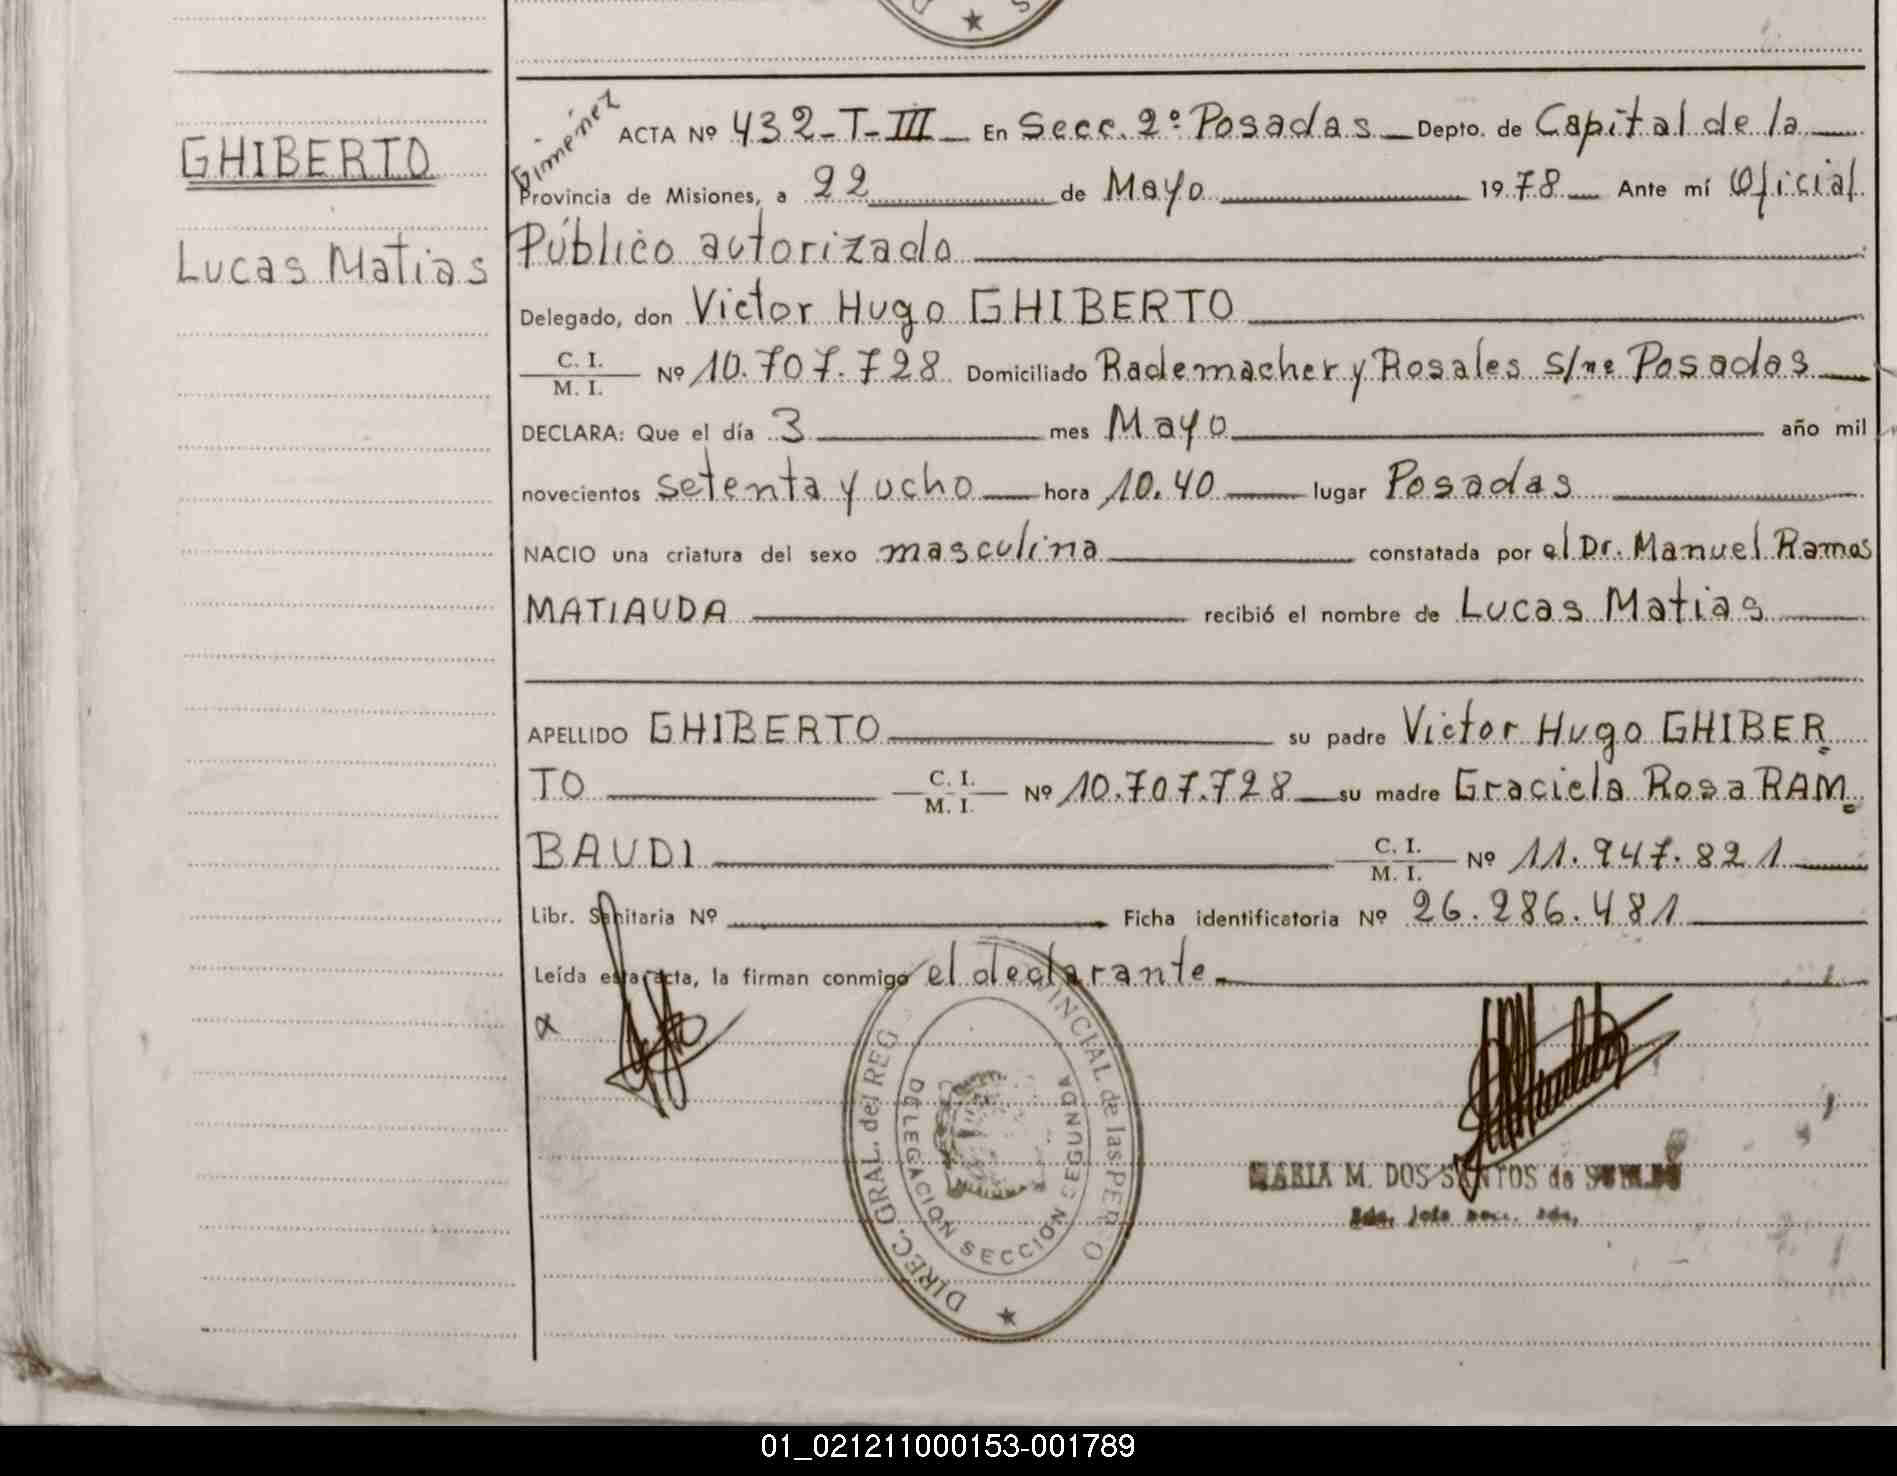 GHIBERTO
Lucas Matias
Gimenez
ACTA Nº 432-T-III En Secc. 2º Posadas Depto. de Capital de la
Provincia de Misiones, a 22 de Mayo 1978 Ante mí Oficial
Público autorizado
Delegado, don Victor Hugo GHIBERTO
C. I.
M. I. Nº 10.707.728 Domiciliado Rademacher y Rosales s/nº Posadas
DECLARA: Que el día 3 mes Mayo año mil
novecientos setenta y ocho hora 10.40 lugar Posadas
NACIO una criatura del sexo masculina constatada por el Dr. Manuel Ramos
MATIAUDA recibió el nombre de Lucas Matias
APELLIDO GHIBERTO su padre Victor Hugo GHIBER
TO C. I.
M. I. Nº 10.707.728 su madre Graciela Rosa RAM
BAUDI C. I.
M. I. Nº 11.947.821
Libr. Sanitaria Nº Ficha identificatoria Nº 26.286.481
Leída esta acta, la firman conmigo el declarante
DIREC. GRAL. del REG INCIAL de las PER O
DELEGACION SECCION SEGUNDA
MARIA M. DOS SANTOS de
01_021211000153-001789